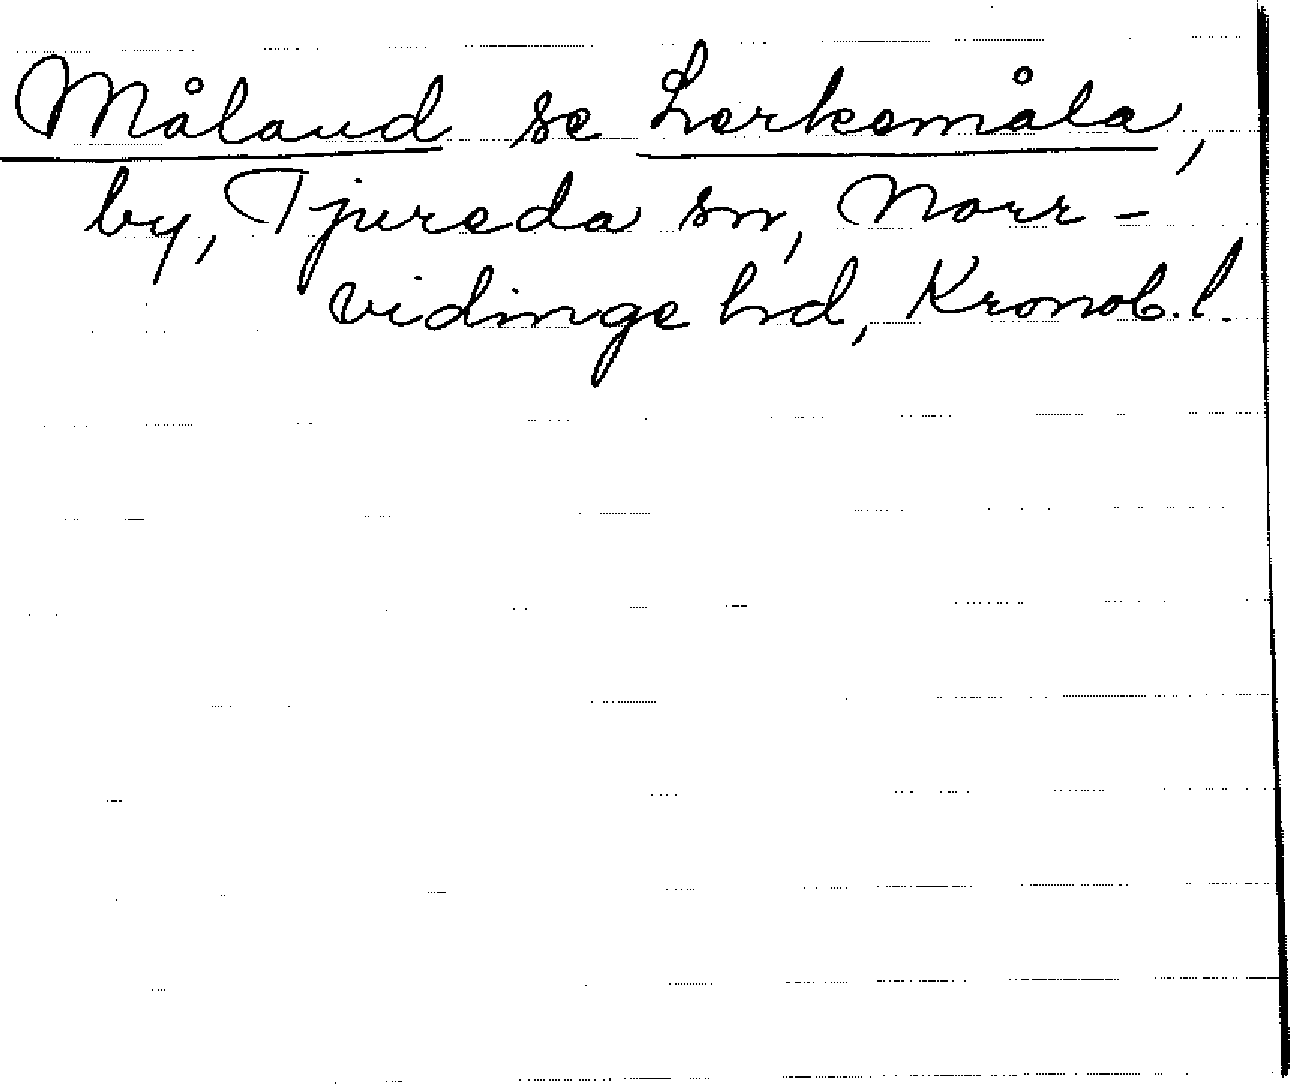 Måland se Lerkemåla,
by, Tjureda sn, Norr-
vidinge hd, Kronob. l.